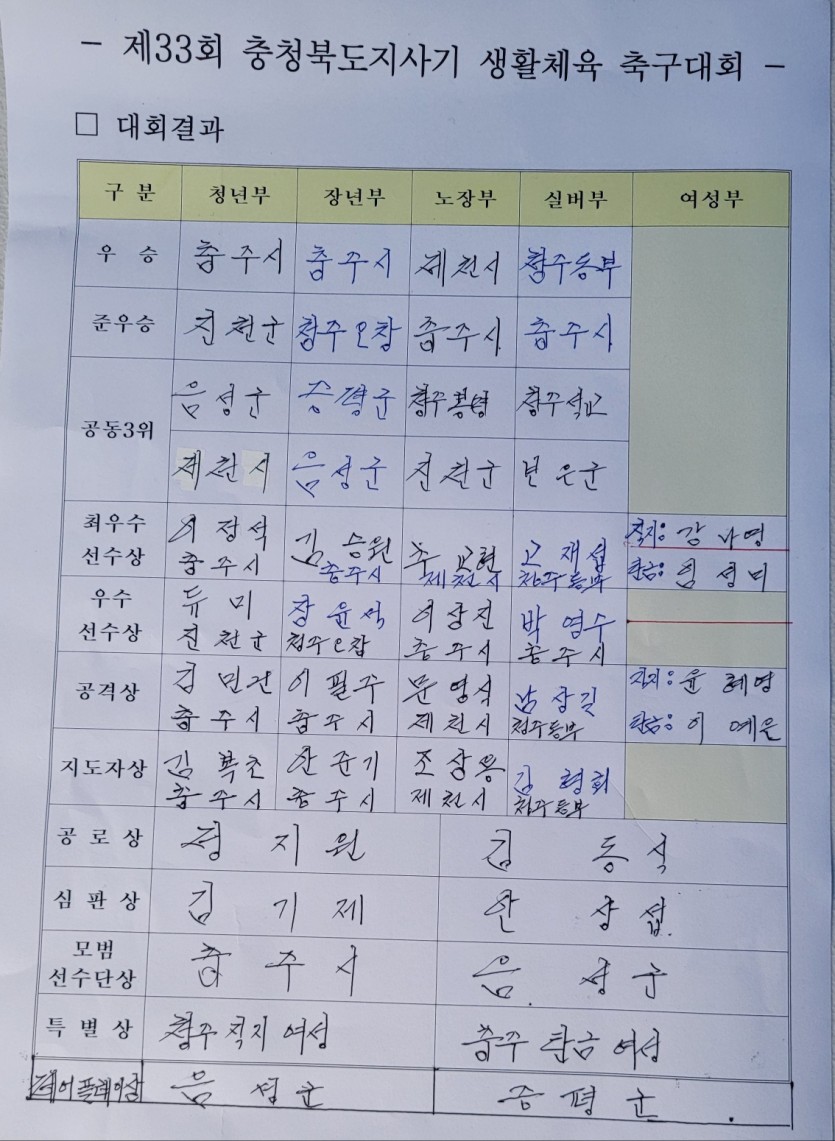 - 제33회 충청북도지사기 생활체육 축구대회 -
□ 대회결과
구 분 청년부 장년부 노장부 실버부 여성부
우 승 충주시 충주시 제천시 청주동부
준우승 진천군 청주오창 충주시 충주시
공동3위
음성군 증평군 청주봉명 청주석교
제천시 음성군 진천군 보은군
최우수
선수상
이정석 김승원 고재섭 직지: 강나영
충주시 충주시 제천시 청주동부 탄금:
우수
선수상
듀미 장윤석 이상진 박영수
진천군 청주오창 충주시 충주시
공격상
김민건 이필주 문영식 남상길 직지: 윤혜영
충주시 충주시 제천시 청주동부 탄금: 이예은
지도자상
안준기 조상용
충주시 충주시 제천시 청주동부
공 로 상 정지원 김동식
심 판 상 김기제 안상섭
모범
선수단상
충주시 음성군
특 별 상 청주직지여성 충주탄금여성
페어플레이상 음성군 증평군